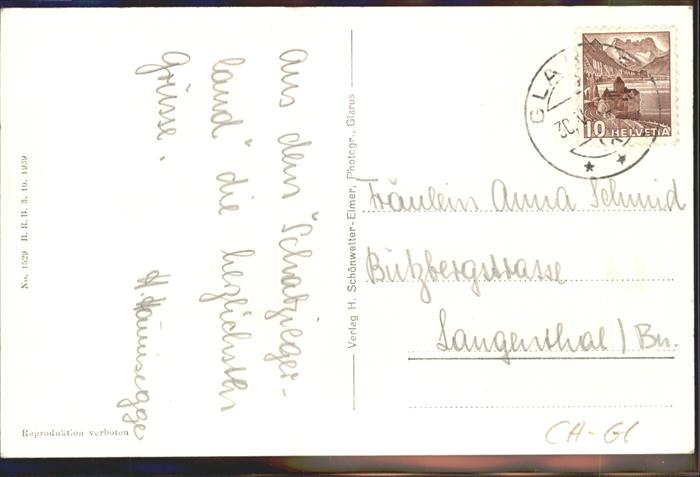 Aus dem "Schabzieger-
land" die herzlichsten
Grüsse.
No. 1529 B. R. B. 3. 10. 1939
Reproduktion verboten
Verlag H. Schönwetter-Elmer, Photogr., Glarus
10 HELVETIA
Fräulein Anna Schmid
Bützbergstrasse
Langenthal / Bn.
CH-GL